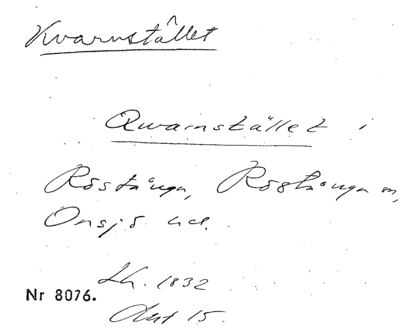 Kvarnstället
Qwarnstället i
Röstånga, Röstånga sn,
Onsjö hd.
Lh. 1832
Nr 8076.
Akt 15.